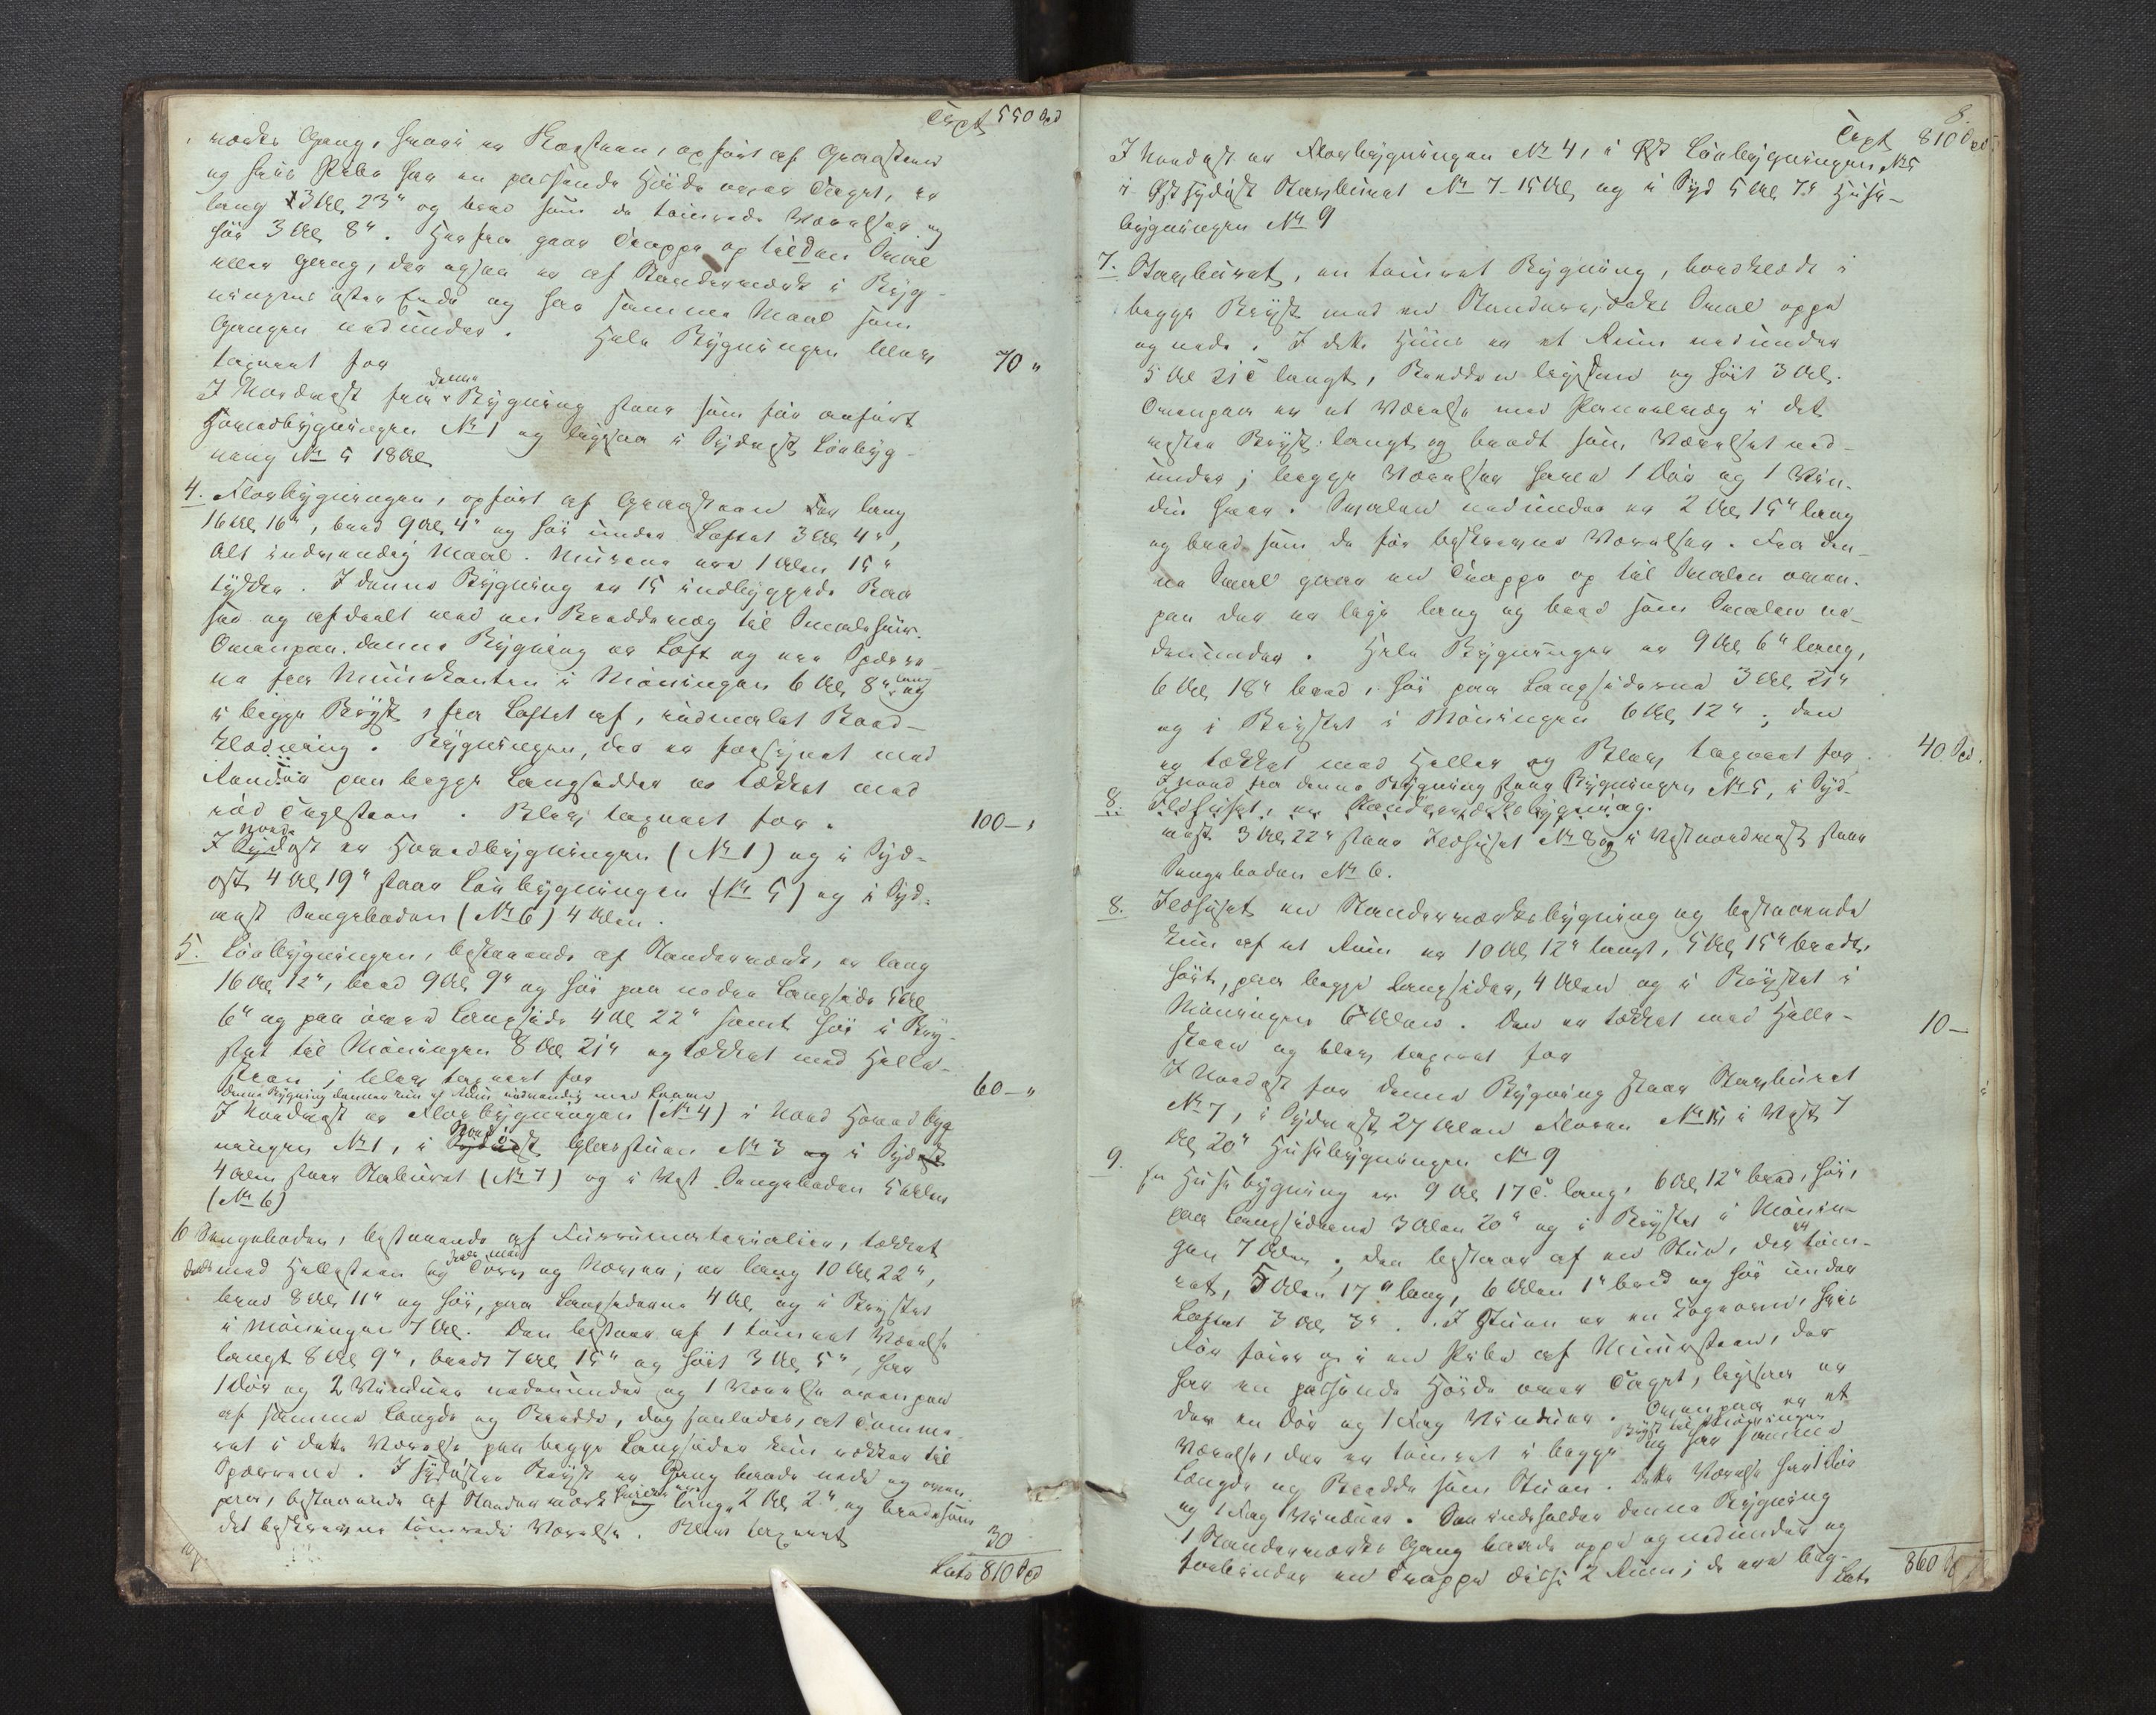 Trspt 550 Spd
værks Gang, hvori er Skorsteen, opført af Graasteen
og hvis Pibe har en passende Høide over Taget, er
lang 3 Al. 23" og bred som de tømrede Værelser og
høi 3 Al. 8". Herfra gaar Trappe op til den Sval
eller Gang, der ogsaa er af Standerværk i Byg-
ningens østre Ende og har samme Maal som
Gangen nedunder. Hele Bygningen blev
taxeret for 70 "
I Nordvest fra denne Bygning staar som før anført
Hovedbygningen No 1 og ligesaa i Sydvest Løebyg-
ning No 5 18 Al.
4. Florbygningen, opført af Graasteen er lang
16 Al. 16", bred 9 Al. 4" og høi under Loftet 3 Al. 4",
Alt indvendig Maal. Murene ere 1 Alen 15"
tykke. I denne Bygning er 15 indbyggede Baa
se og afdeelt med en Breddevæg til Smalehuus.
Ovenpaa denne Bygning er Loft og ere Spærre-
ne fra Muurkanten i Møningen 6 Al. 8" lang og
i begge Bryst, fra Loftet af, rødmalet Bord-
klædning. Bygningen, der er forsynet med
Rendør paa begge Langsidder er tækket med
rød Tagsteen. Blev taxeret for. 100 – "
I Nordost er Hovedbygningen (No 1) og i Syd-
ost 4 Al. 19" staar Løebygningen (No 5) og i Syd-
vest Sengeboden (No 6) 4 Alen.
5. Løebygningen, bestaaende af Standerværk, er lang
16 Al. 12", bred 9 Al. 9" og høi paa nedre Langside 5 Al.
6" og paa øvre Langside 4 Al. 22" samt høi i Bry-
stet til Møningen 8 Al. 21" og tækket med Helle-
steen; blev taxeret for 60 – "
denne Bygning danner kun et Rum indvendig med Laave
I Nordvest er Florbygningen (No 4) i Nord Hovedbyg
ningen No 1, i Nordost Glasstuen No 3 og i Syd
4 Alen staar Staburet (No 7) og i Vest Sengeboden 5 Alen
(No 6)
6 Sengeboden, bestaaende af Furrumaterialier, tækket
deels med Hellesteen og deels med Torv og Næver, er lang 10 Al. 22",
bred 8 Al. 11" og høi, paa Langsiderne 4 Al. og i Brystet
i Møningen 7 Al. Den bestaar af 1 tømret Værelse
langt 8 Al. 9", bredt 7 Al. 15" og høit 3 Al. 5", har
1 Dør og 2 Vinduer nedenunder og 1 Værelse ovenpaa
af samme Længde og Bredde, dog saaledes, at Tømme-
ret i dette Værelse paa begge Langsider kun rækker til
Spærrene. I sydøstre Bryst er Gang baade nede og oven
paa, bestaaende af Standerværk lange 2 Al. 2" og brede som
det beskrevne tømrede Værelse. Blev taxeret 30
Lats 810 Spd
8.
Trspt 810 Spd
I Nordost er Florbygningen No 4, i Øst Løebygningen No 5
i Østsydøst Starburet No 7 – 15 Al. og i Syd 5 Al. 7" Huse-
bygningen No 9
7. Starburet, en tømret Bygning, bordklædt i
begge Bryst med en Standerværks Sval oppe
og nede. I dette Huus er et Rum nedunder
5 Al. 21" langt, Bredden ligesaa og høit 3 Al.
Ovenpaa er et Værelse med Paneelvæg i det
vestre Bryst: langt og bredt som Værelset ned-
under; begge Værelser have 1 Dør og 1 Vin-
due hver. Svalen nedunder er 2 Al. 15" lang
og bred som de før beskrevne Værelser. Fra den-
ne Sval gaar en Trappe op til Svalen oven-
paa der er lige lang og bred som Svalen ne-
denunder. Hele Bygningen er 9 Al. 6" lang,
6 Al. 18" bred, høi paa Langsiderne 3 Al. 21"
og i Brystet i Møningen 6 Al. 12"; den
er tækket med Heller og Blev taxeret for 40 Spd.
I Nord fra denne Bygning staar Bygningen No 5, i Syd-
8. Ildhuset, en Standerværksbygning.
vest 3 Al. 22" staar Ildhuset No 8 og i Vestnordvest staar
Sengeboden No 6.
8. Ildhuset en Standerværksbygning og bestaaende
kun af et Rum er 10 Al. 12" langt, 5 Al. 15" bredt,
høit, paa begge Langsider, 4 Alen og i Brystet i
Møningen 6 Alen. Den er tækket med Helle-
steen og blev taxeret for 10 –
I Nordost for denne Bygning staar Starburet
No 7, i Sydvest 27 Alen Floren No 15, i Vest 7
Al. 20" Husebygningen No 9
9. En Husebygning er 9 Al. 17" lang, 6 Al. 12" bred, høi,
paa Langsiderne 3 Alen 20" og i Brystet i Mønin-
gen 7 Alen; den bestaar af en Stue, der er tøm-
ret, 5 Alen 17" lang, 6 Alen 1" bred og høi under
Loftet 3 Al. 3". I Stuen er en Bagerovn, hvis
Rør fører op i en Pibe af Muursteen, der
har en passende Høide over Taget, ligesaa er
der en Dør og 1 Fag Vinduer. Ovenpaa er et
Værelse, der er tømret i begge Bryst til Møningen og har samme
Længde og Bredde som Stuen. Dette Værelse har 1 Dør
og 1 Fag Vinduer. Saa indeholder denne Bygning
1 Standerværks Gang baade oppe og nedunder og
forbinder en Trappe disse 2 Rum; de ere beg-
Lats 860 Sp